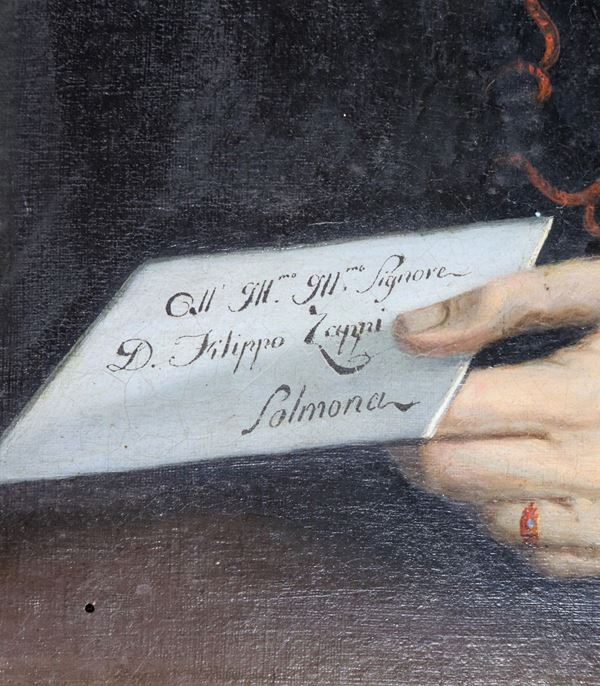 All' Ill.mo Ill.mo Signore
D. Filippo Zappi
Solmona